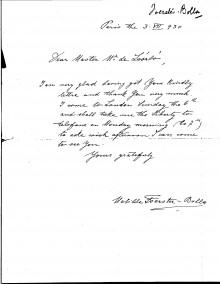 Foerster-Bolla
Paris the 3. VII 930
Dear Master Mr. de László,
I am very glad having got your kindly
lettre and thank you very much.
I come to London Sunday the 6th
and shall take me the liberty to
telefone on Monday morning (to 7th)
to ask wich afternoon I can come
to see you.
Yours gratefuly
Foerster-Bolla